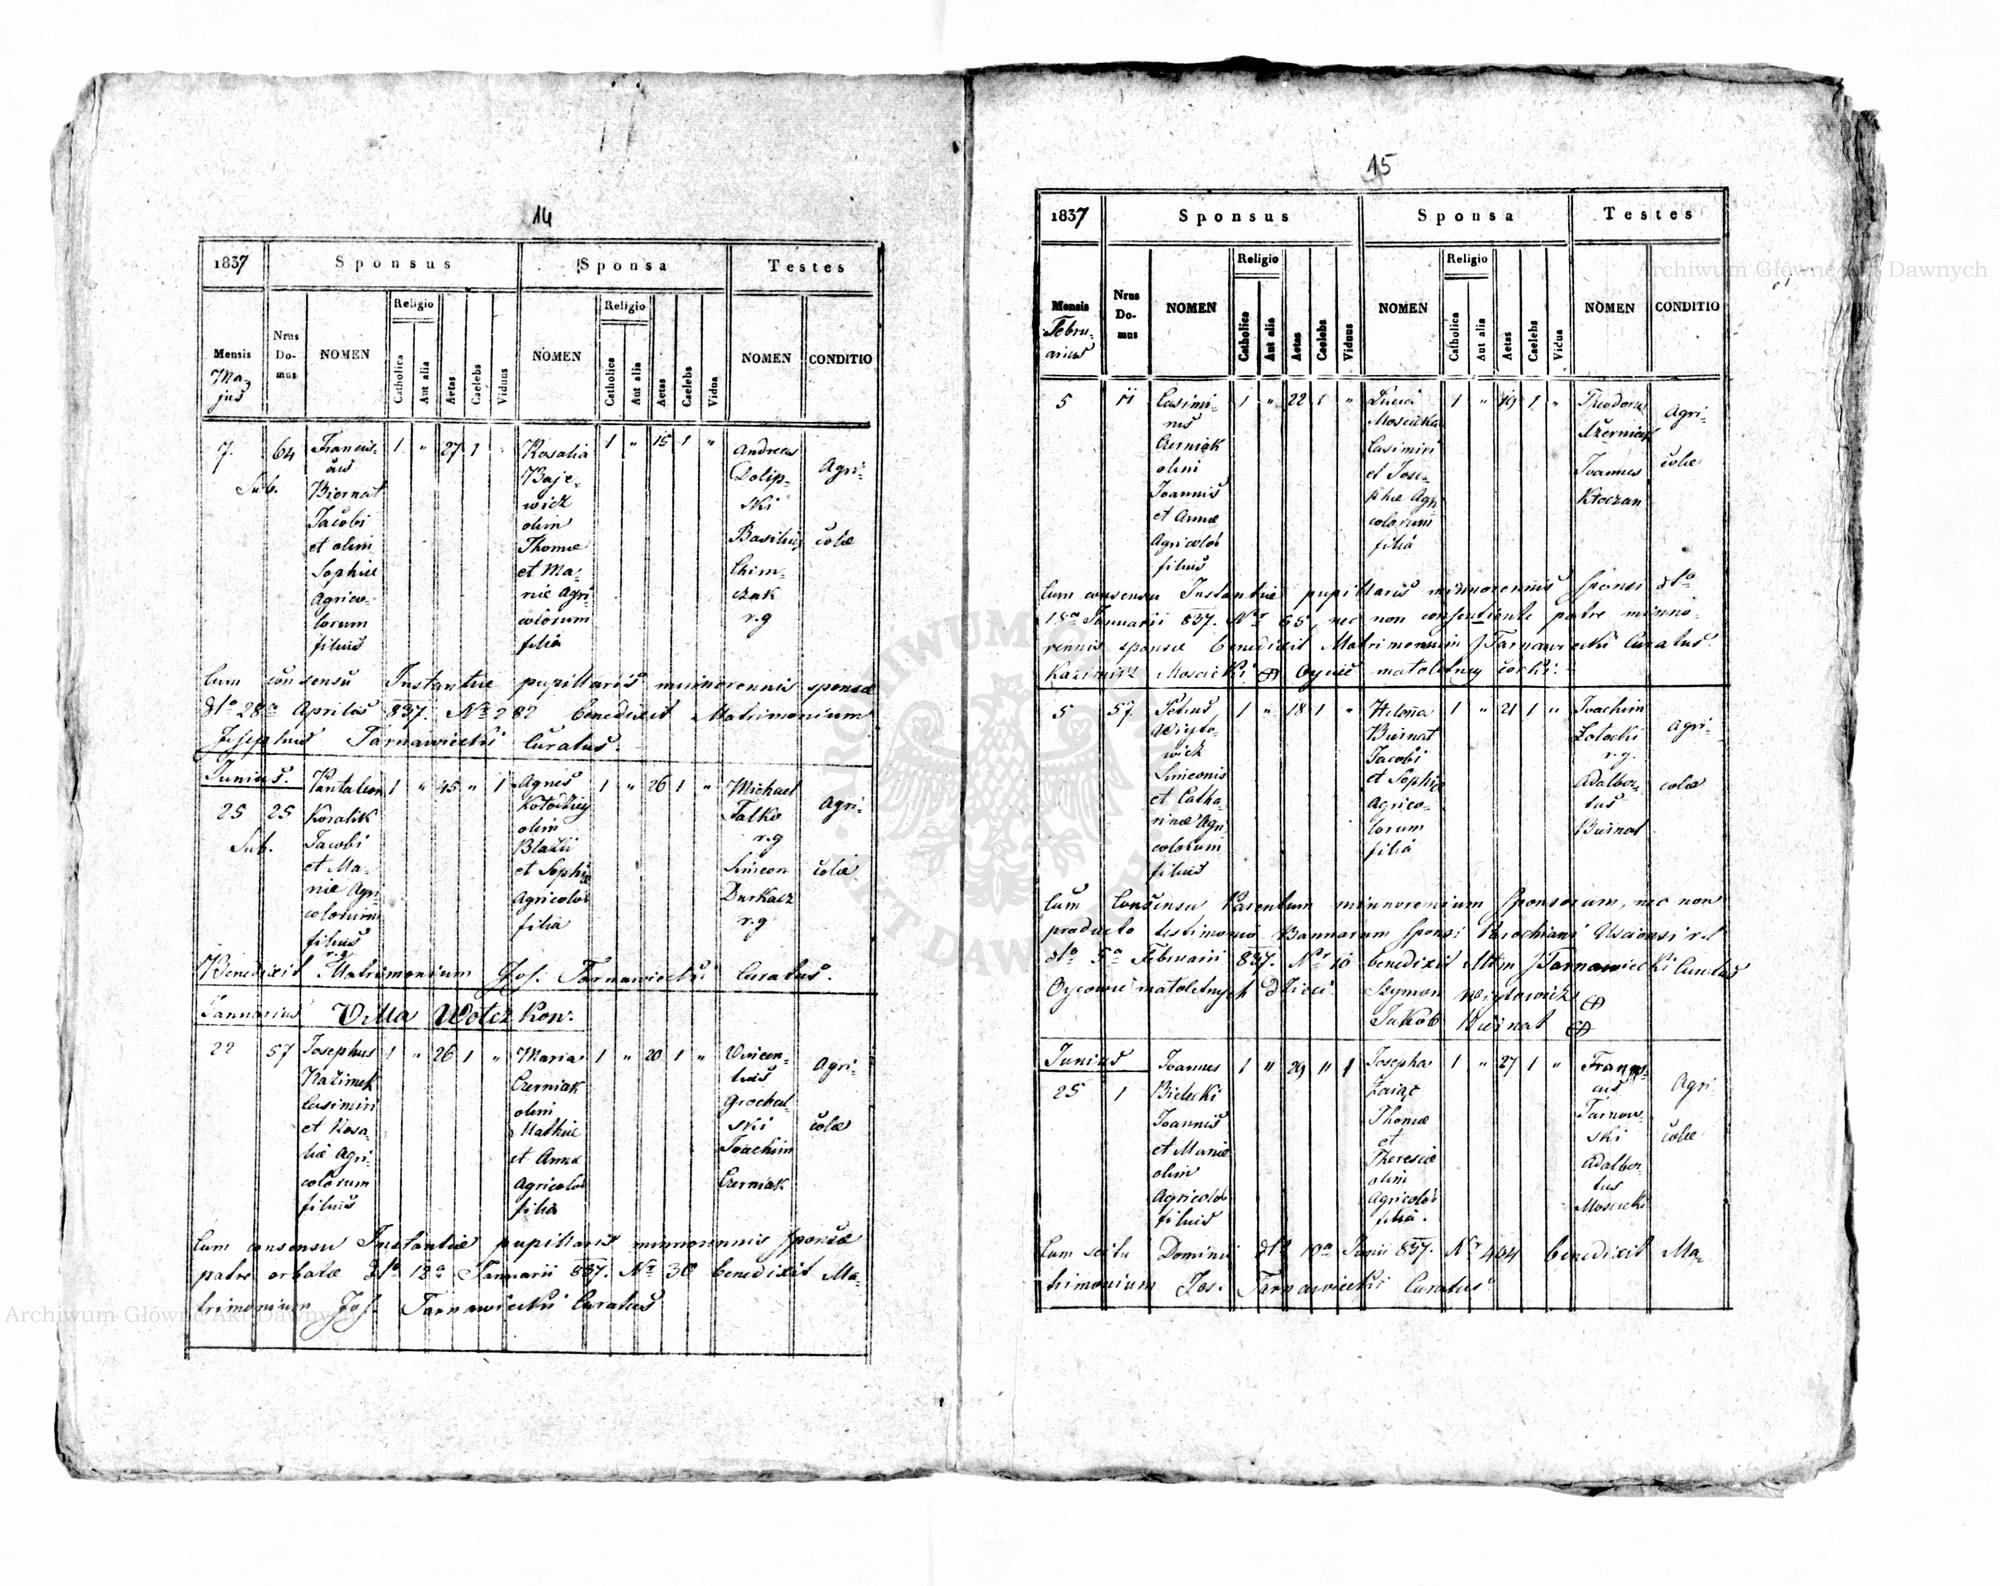 14
1837
Sponsus
Sponsa
Testes
Mensis
Majus
Nrus Domus
NOMEN
Religio
Catholica
Aut alia
Aetas
Caelebs
Viduus
NOMEN
Religio
Catholica
Aut alia
Aetas
Caelebs
Vidua
NOMEN
CONDITIO
7.
Sub.
64
Francis-
cus
Biernat
Jacobi
et olim
Sophiae
Agrico-
larum
filius
1 " 27 1 "
Rosalia
Baje-
wicz
olim
Thomae
et Ma-
riae Agri-
colorum
filia
1 " 15 1 "
Andreas
Dolip-
ski
Basilius
Chim-
czak
r.g
Agri-
colae
Cum consensu Instantiae pupillaris minorennis sponsae
dto 28a Aprilis 837. No 282 benedixit Matrimonium
Josephus Tarnawiecki Curatus.
Junius.
25
Sub.
25
Pantaleon
Koralik
Jacobi
et Ma-
riae Agri-
colorum
filius
r.g
1 " 45 " 1
Agnes
Kołodziey
olim
Blasii
et Sophiae
Agricolar
filia
1 " 26 1 "
Michael
Falko
r.g
Simeon
Durkacz
r.g
Agri-
colae
Benedixit Matrimonium Jos. Tarnawiecki Curatus.
Januarius Villa Wołcz Kow.
22
57
Josephus
Kazimek
Casimiri
et Rosa-
liae Agri-
colarum
filius
1 " 26 1 "
Maria
Czerniak
olim
Mathiae
et Annae
Agricolar
filia
1 " 20 1 "
Vincen-
tius
Grochol-
ski
Joachim
Czerniak
Agri-
colae
Cum consensu Instantiae pupillaris minorennis Sponsae
patre orbatae dto 12a Januarii 837. No 36 benedixit Ma-
trimonium Jos. Tarnawiecki Curatus
15
1837
Sponsus
Sponsa
Testes
Mensis
Febru-
arius
Nrus Domus
NOMEN
Religio
Catholica
Aut alia
Aetas
Caelebs
Viduus
NOMEN
Religio
Catholica
Aut alia
Aetas
Caelebs
Vidua
NOMEN
CONDITIO
5
11
Casimi-
rus
Czerniak
olim
Joannis
et Annae
Agricolar
filius
1 " 22 1 "
Lucia
Moscicka
Casimiri
et Jose-
phae Agri
colarum
filia
1 " 19 1 "
Theodorus
Joannes
Kłoczan
Agri-
colae
Cum consensu Instantiae pupillaris minnorennis Sponsi dto
18a Januarii 837. Nr 65, nec non consentiente patre minno-
rennis sponsae benedixit Matrimonium J Tarnawiecki Curatus.
Kazimirz Moscicki + Oyciec małoletniy corki.
5
57
Petrus
Woyto-
wicz
Simeonis
et Catha-
rinae Agri
colarum
filius
1 " 18 1 "
Helena
Biernat
Jacobi
et Sophiae
Agrico-
larum
filia
1 " 21 1 "
Joachim
Zołocki
r.g.
Adalber-
tus
Biernat
Agri-
colae
Cum Consensu Parentum minnorenium Sponsorum, nec non
producto testimonio Bannorum Sponsi
dto 5a Februarii 837. Nr 10 benedixit Mtm J Tarnawiecki Curatus
Oycowie małoletnych dzieci. Szymon Woytowicz +
Jakob Biernat +
Junius
25
1
Joannes
Bielecki
Joannis
et Mariae
olim
Agricolar
filius
1 " 29 " 1
Josepha
Zaiąc
Thomae
et
Theresiae
olim
Agricolar
filia.
1 " 27 1 "
Francis-
cus
Tarnow-
ski
Adalber-
tus
Moscicki
Agri
colae
Cum scitu Dominii dto 10a Junii 837. Nr 404 benedixit Ma-
trimonium Jos. Tarnawiecki Curatus
Archiwum Główne Akt Dawnych
Archiwum Główne Akt Dawnych
ARCHIWUM GŁÓWNE AKT DAWNYCH